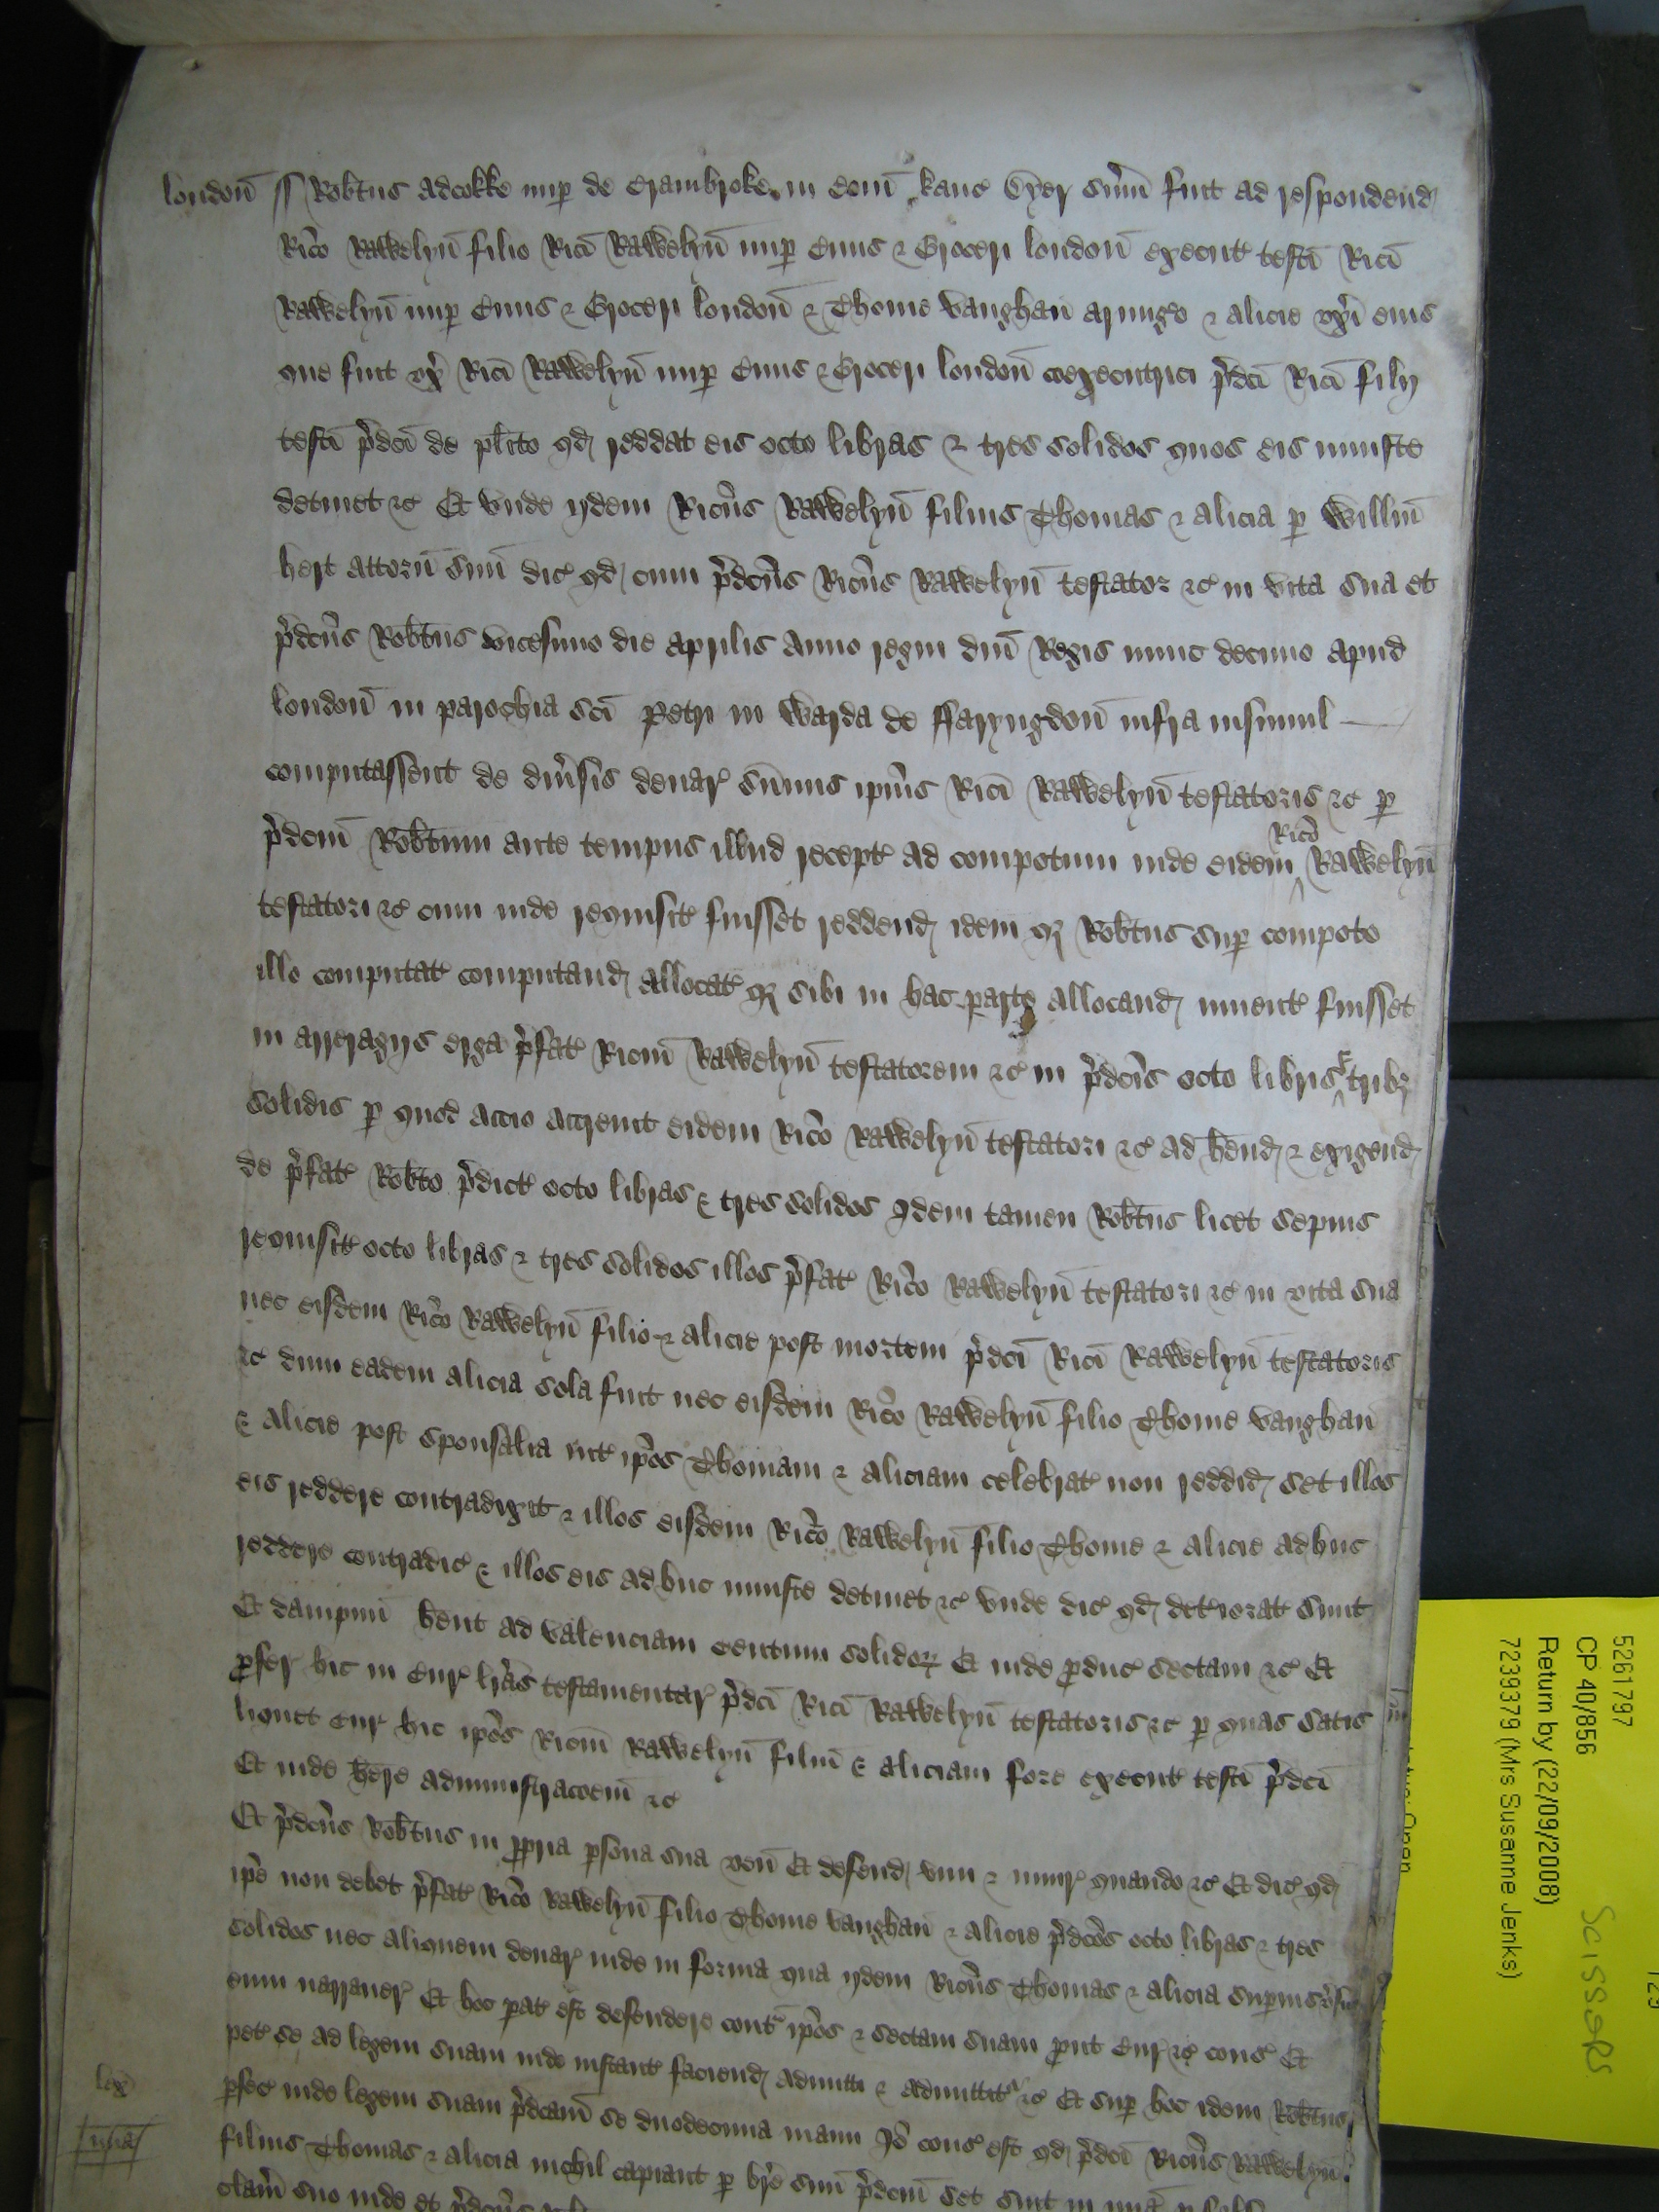 londoñ ss Robtus Adcokke nup de Crambroke in Com̃ kanc Dyer sum̃ fuit ad respondend
Rico Rawelyn filio Rici Rawelyn nup Ciuis & Groceri londoñ execut testi Rici
Rawelyn nup Ciuis & Groceri londoñ & Thome vaughan armigo & Alicie uxi eius
que fuit ux Rici Rawelyn nup Ciuis & Groceri londoñ coexecutrici pdci Rici filij
testi pdci de plito qd reddat eis octo libras & tres solidos quos eis iniuste
detinet &c Et vnde ijdem Ricus Rawelyn filius Thomas & Alicia p Willm
hert attorñ suũ dic qd cum pdcus Ricus Rawelyn testator &c in vita sua et
pdcus Robtus vicesimo die Aprilis Anno regni dñi Regis nunc decimo apud
londoñ in parochia sci Petri in Warda de ffaryngdoñ infra insimul
computassent de diusis denar sum̃is ipius Rici Rawelyn testatoris &c p
pdcm Robtum ante tempus illud recept ad compotum inde eidem Rico Rawelyn
testatori &c cum inde requisit fuisset reddend idem q Robtus sup compoto
illo computat computand allocat q sibi in hac parte allocand inuent fuisset
in arreragijs erga pfat Ricm Rawelyn testatorem &c in pdcis octo libris & tribz
solidis p quod accio accreuit eidem Rico Rawelyn testatori &c ad hend & exigend
de pfat Robto pdict octo libras & tres solidos qdem tamen Robtus licet sepius
requisit octo libras & tres solidos illos pfat Rico Rawelyn testatori &c in vita sua
nec eisdem Rico Rawelyn filio & Alicie post mortem pdci Rici Rawelyn testatoris
&c dum eadem Alicia sola fuit nec eisdem Rico Rawelyn filio Thome vaughan
& Alicie post sponsalia int ipos Thomam & Aliciam celebrat non reddid set illos
eis reddere contradixit & illos eisdem Rico Rawelyn filio Thome & Alicie adhuc
reddere contradic & illos eis adhuc iniuste detinet &c vnde dic qd detiorat sunt
Et dampnũ hent ad valenciam Centum solidor Et inde produc sectam &c Et
profer hic in Cur lras testamentar pdci Rici Rawelyn testatoris &c p quas satis
liquet Cur hic ipos Ricm Rawelyn filiũ & Aliciam fore execut testi pdci
Et inde here administracoem &c
Et pdcus Robtus in propria psona sua veñ Et defend vim & iniur quando &c Et dic qd
ipe non debet pfat Rico Rawelyn filio Thome vaughan & Alicie pdcos octo libras & tres
solidos nec aliquem denar inde in forma qua ijdem Ricus Thomas & Alicia supius vrsus
eum narrauer Et hoc parat est defendere cont ipos & sectam suam prout Cur &c cons Et
pet se ad legem suam inde instant faciend admitti & admittit &c Et sup hoc idem Robtus
lex pfec inde legem suam pdcam se duodecima manu Io cons est qd pdci Ricus Rawelyn
mia filius Thomas & Alicia nichil capiant p bre suũ pdcm set sint in mia p falso
clam suo inde et pdcus Robtus
5261797
CP 40/856
Return by (22/09/2008)
7239379 (Mrs Susanne Jenks)
SCISSORS